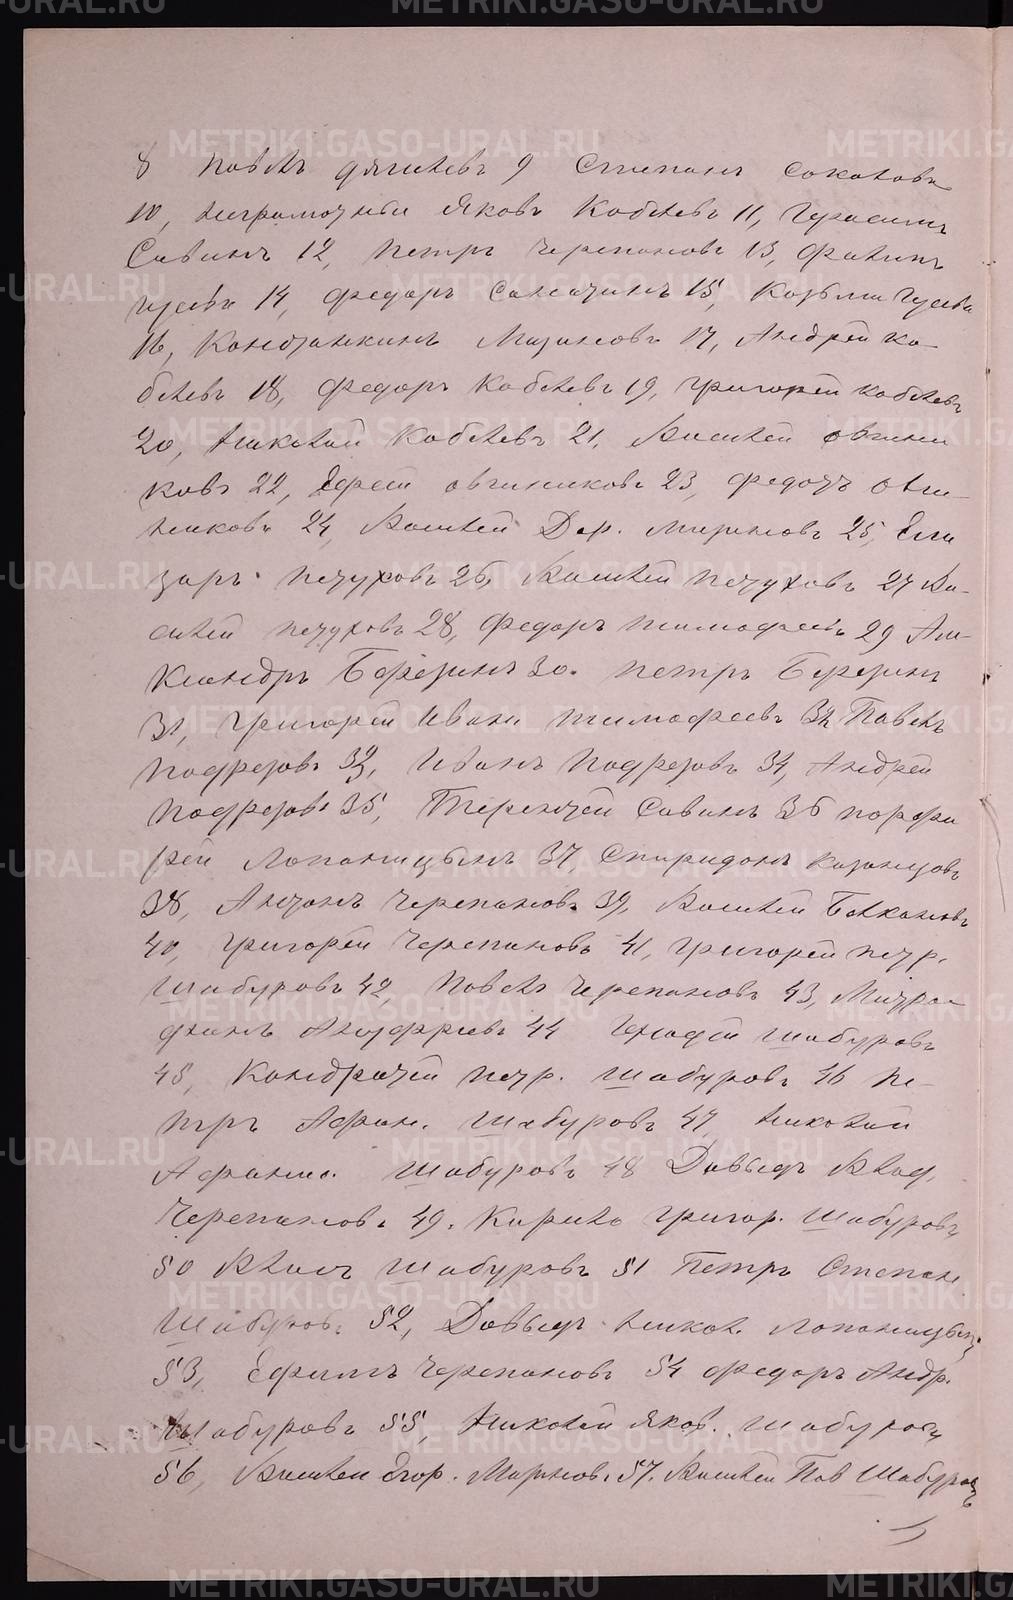 8 Павелъ Дягилевъ 9 Степанъ Соколовъ
10, неграмотный Яковъ Кобелевъ 11, Герасимъ
Савинъ 12, Петръ Черепановъ 13, Филипъ
Гусевъ 14, Федоръ 15, Козьма Гусевъ
16, Константинъ 17, Андрей Ко-
белевъ 18, Федоръ Кобелевъ 19, Григорей Кобелевъ
20, Николай Кобелевъ 21, Василей Овчини
ковъ 22, Ефрем Овчиниковъ 23, Федотъ Овчи-
никовъ 24, Василей 25, Ели
заръ Петуховъ 26, Василей Петуховъ 27 Ва-
силей Петуховъ 28, Федоръ Тимофеевъ 29 Але-
ксандръ Березинъ 30. Петръ Березинъ
31, Григорей Иван Тимофеевъ 32 Павелъ
Подрезовъ 33, Иванъ Подрезовъ 34, Андрей
Подрезовъ 35, Терентей Савинъ 36 Порфи
рей Лопаницынъ 37, Спиридонъ Казанцовъ
38, Антонъ Черепановъ 39, Василей
40, Григорей Черепановъ 41, Григорей Петр.
Шабуровъ 42, Павелъ Черепановъ 43, Митро-
фанъ Ануфриевъ 44 Шабуровъ
45, Кондратей Петр. Шабуровъ 46 Пе-
тръ Афан. Шабуровъ 47 Николай
Афанас. Шабуровъ 48 Давыдъ Влад.
Черепановъ 49. Кирило Григор. Шабуровъ
50 Власъ Шабуровъ 51 Петръ Степан
Шабуровъ 52, Давыдъ Никол. Лопаницынъ
53, Ефимъ Черепановъ 54 Федоръ Андр.
Шабуровъ 55, Николай Яков. Шабуровъ
56, Василей Егор. 57. Василей Пав Шабуровъ
METRIKI.GASO-URAL.RU